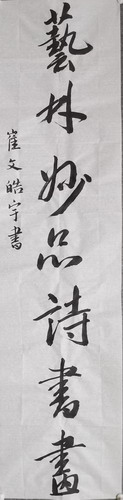 藝林妙品詩書畫
崔文皓宇書